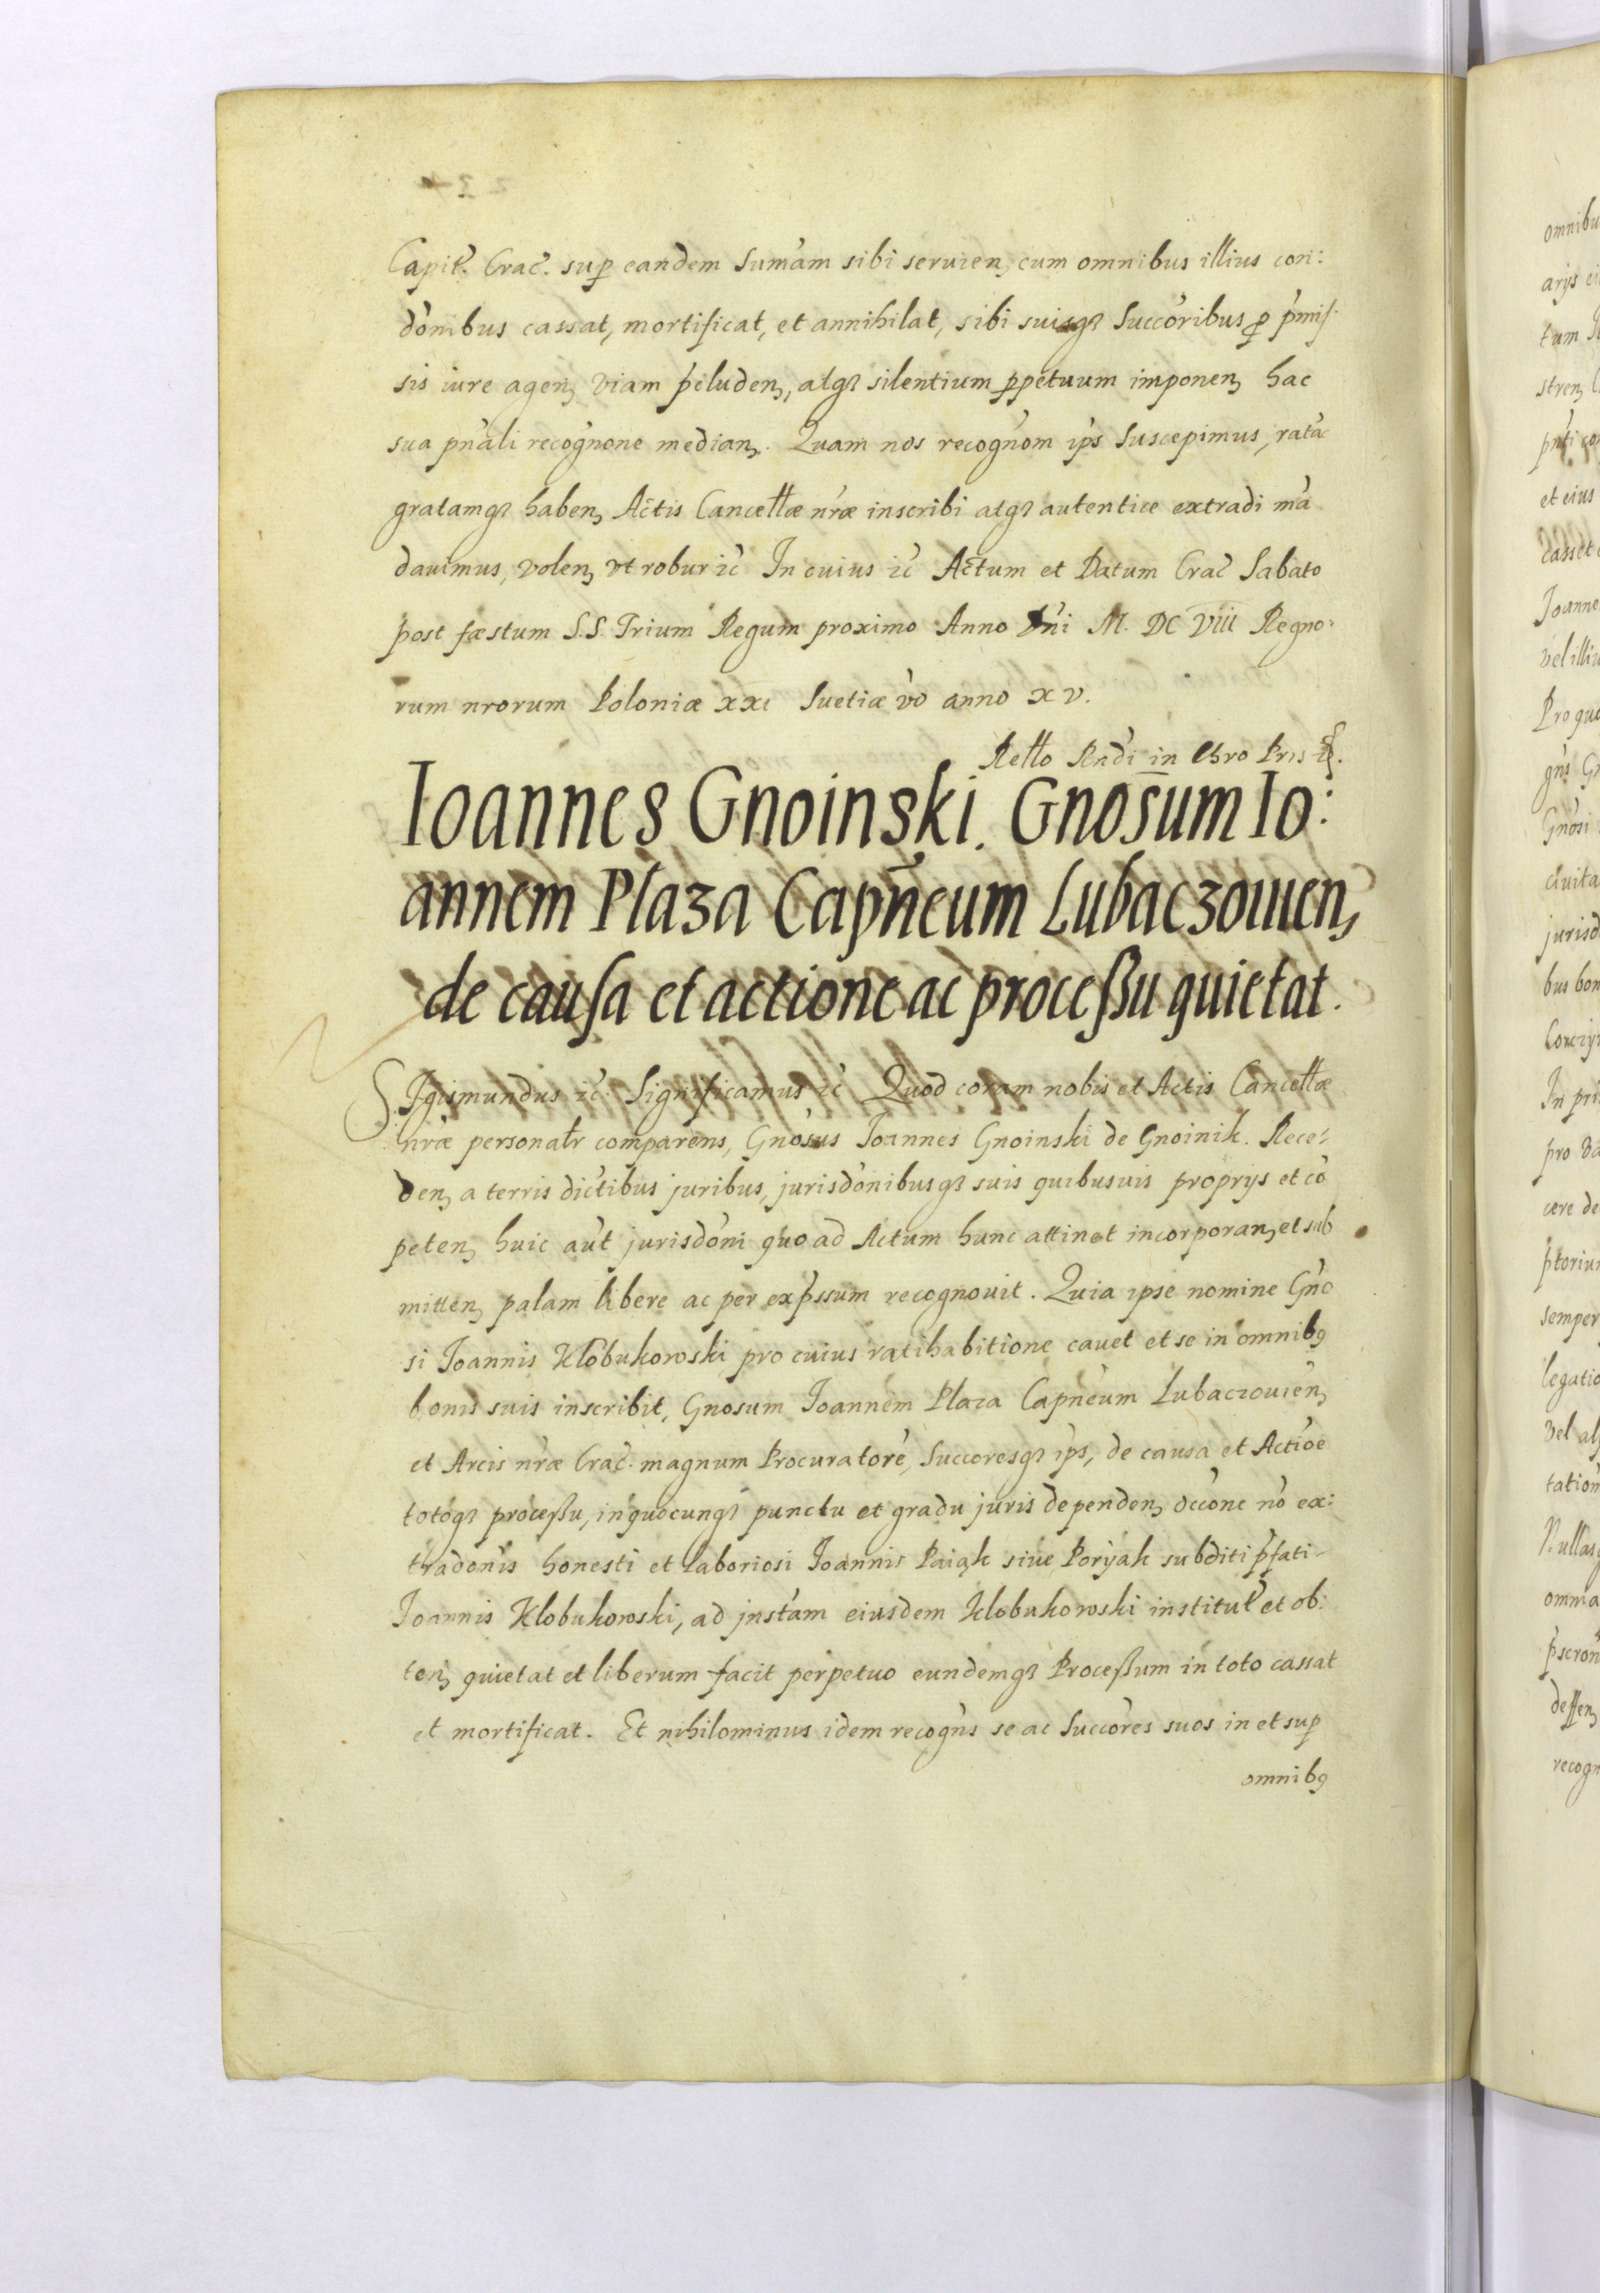 Capit̃. Crac̃. sup eandem Sumam sibi seruien, cum omnibus illius con:
dõnibus cassat, mortificat, et annihilat, sibi suisq3 Succoribus p p̃mis:
sis iure agen, viam p̃cluden, atq3 silentium ppetuum imponen, hac
sua pñali recogñone median. Quam nos recognom ips Suscepimus, ratã
gratamq3 haben, Actis Cancellæ nræ inscribi atq3 autentice extradi mã
dauimus, volen, vt robur ic̃ In cuius ic̃ Actum et Datum Crac̃ Sabato
post fæstum S.S. Trium Regum proximo Anno Dñi M. DC VIII Regno:
rum nrorum Poloniæ xxi Suetiæ vo anno xv.
Rello Rndi in Chro Pris
Ioannes Gnoinski. Gnosum Io:
annem Plaza Capñeum Lubaczouien,
de causa et actione ac proceßu quietat.
Sigismundus ic̃. Significamus ic̃ Quod coram nobis et Actis Cancellæ
nræ personalr comparens, Gnosus Ioannes Gnoinski de Gnoinik. Rece:
den, a terris dictibus juribus, jurisdõnibusq3 suis quibusuis proprijs et cõ
peten, huic aut jurisdõni quo ad Actum hunc attinet incorporan, et sub
mitten, palam libere ac per exp̃ssum recognouit. Quia ipse nomine Gno
si Joannis Klobukowski pro cuius ratihabitione cauet et se in omnib9
bonis suis inscribit, Gnosum Ioannem Plaza Capneum Lubaczouien,
et Arcis nræ Crac̃. magnum Procuratorẽ, Succoresq3 ips, de causa et Actioẽ
totoq3 proceßu, in quocunq3 punctu et gradu juris dependen, occone nõ ex:
tradonis honesti et laboriosi Joannis Paiąk siue Poryak subditi p̃fati
Joannis Klobukowski, ad jnstam eiusdem Klobukowski institut̃ et ob:
ten, quietat et liberum facit perpetuo eundemq3 Proceßum in toto cassat
et mortificat. Et nihilominus idem recogñs se ac Succores suos in et sup
omnib9
omnibu
tum
et eius
Joanne
vel illiu
ciuita
jurisd
In pri
semper
legatio
omnia
recogn